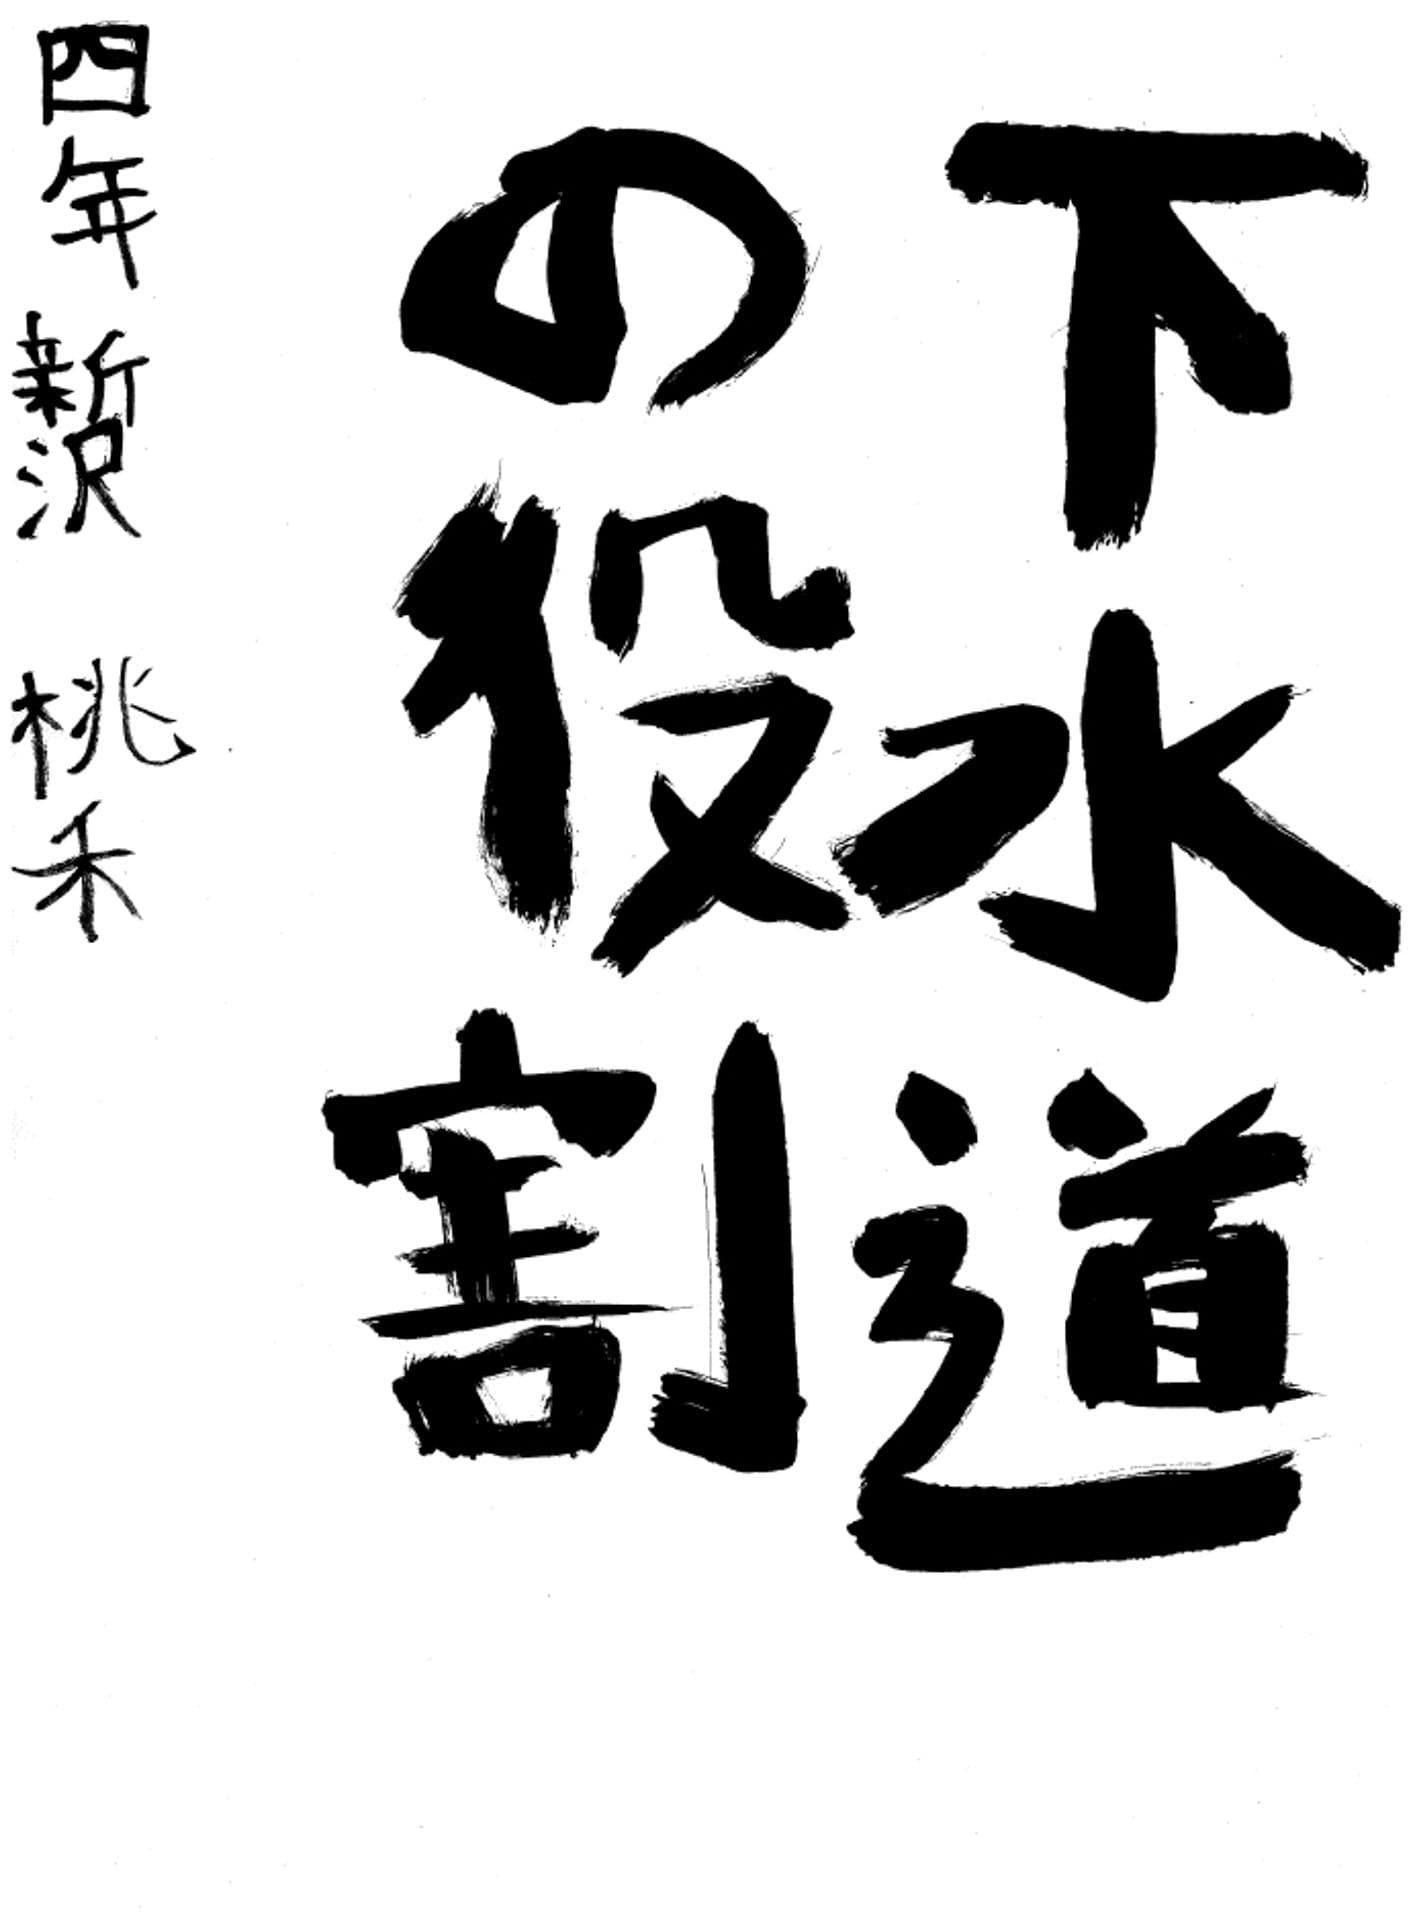 下水道
の役割
四年 新沢 桃禾